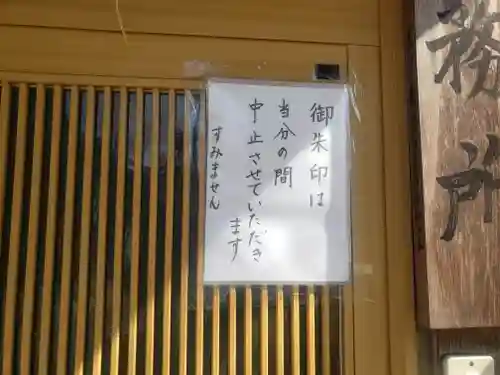 御朱印は
当分の間
中止させていただき
ます
すみません
務所